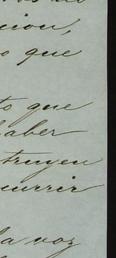 cion,
o que
to que
haber
truyen
currir
la voz